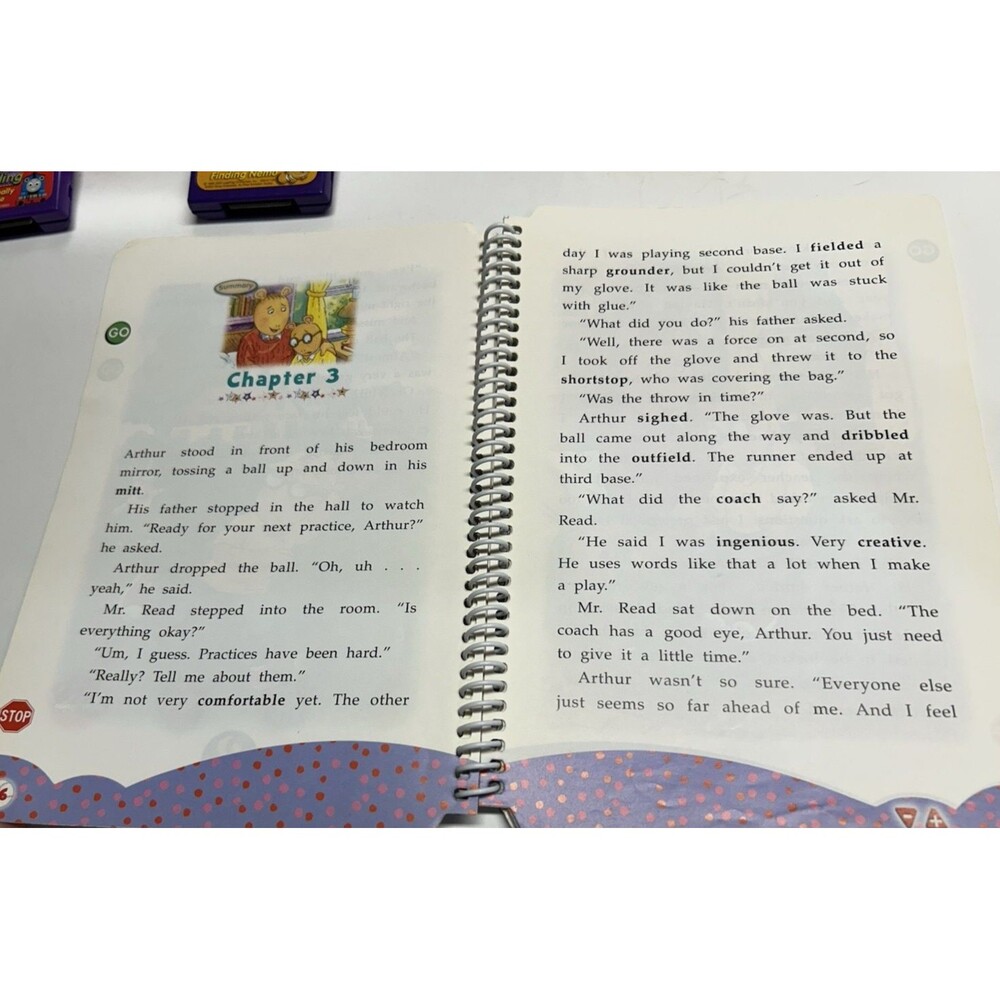 Finding Nemo
Summary
GO
Chapter 3
Arthur stood in front of his bedroom
mirror, tossing a ball up and down in his
mitt.
His father stopped in the hall to watch
him. “Ready for your next practice, Arthur?”
he asked.
Arthur dropped the ball. “Oh, uh . . .
yeah,” he said.
Mr. Read stepped into the room. “Is
everything okay?”
“Um, I guess. Practices have been hard.”
“Really? Tell me about them.”
“I’m not very comfortable yet. The other
STOP
6
day I was playing second base. I fielded a
sharp grounder, but I couldn’t get it out of
my glove. It was like the ball was stuck
with glue.”
“What did you do?” his father asked.
“Well, there was a force on at second, so
I took off the glove and threw it to the
shortstop, who was covering the bag.”
“Was the throw in time?”
Arthur sighed. “The glove was. But the
ball came out along the way and dribbled
into the outfield. The runner ended up at
third base.”
“What did the coach say?” asked Mr.
Read.
“He said I was ingenious. Very creative.
He uses words like that a lot when I make
a play.”
Mr. Read sat down on the bed. “The
coach has a good eye, Arthur. You just need
to give it a little time.”
Arthur wasn’t so sure. “Everyone else
just seems so far ahead of me. And I feel
- +